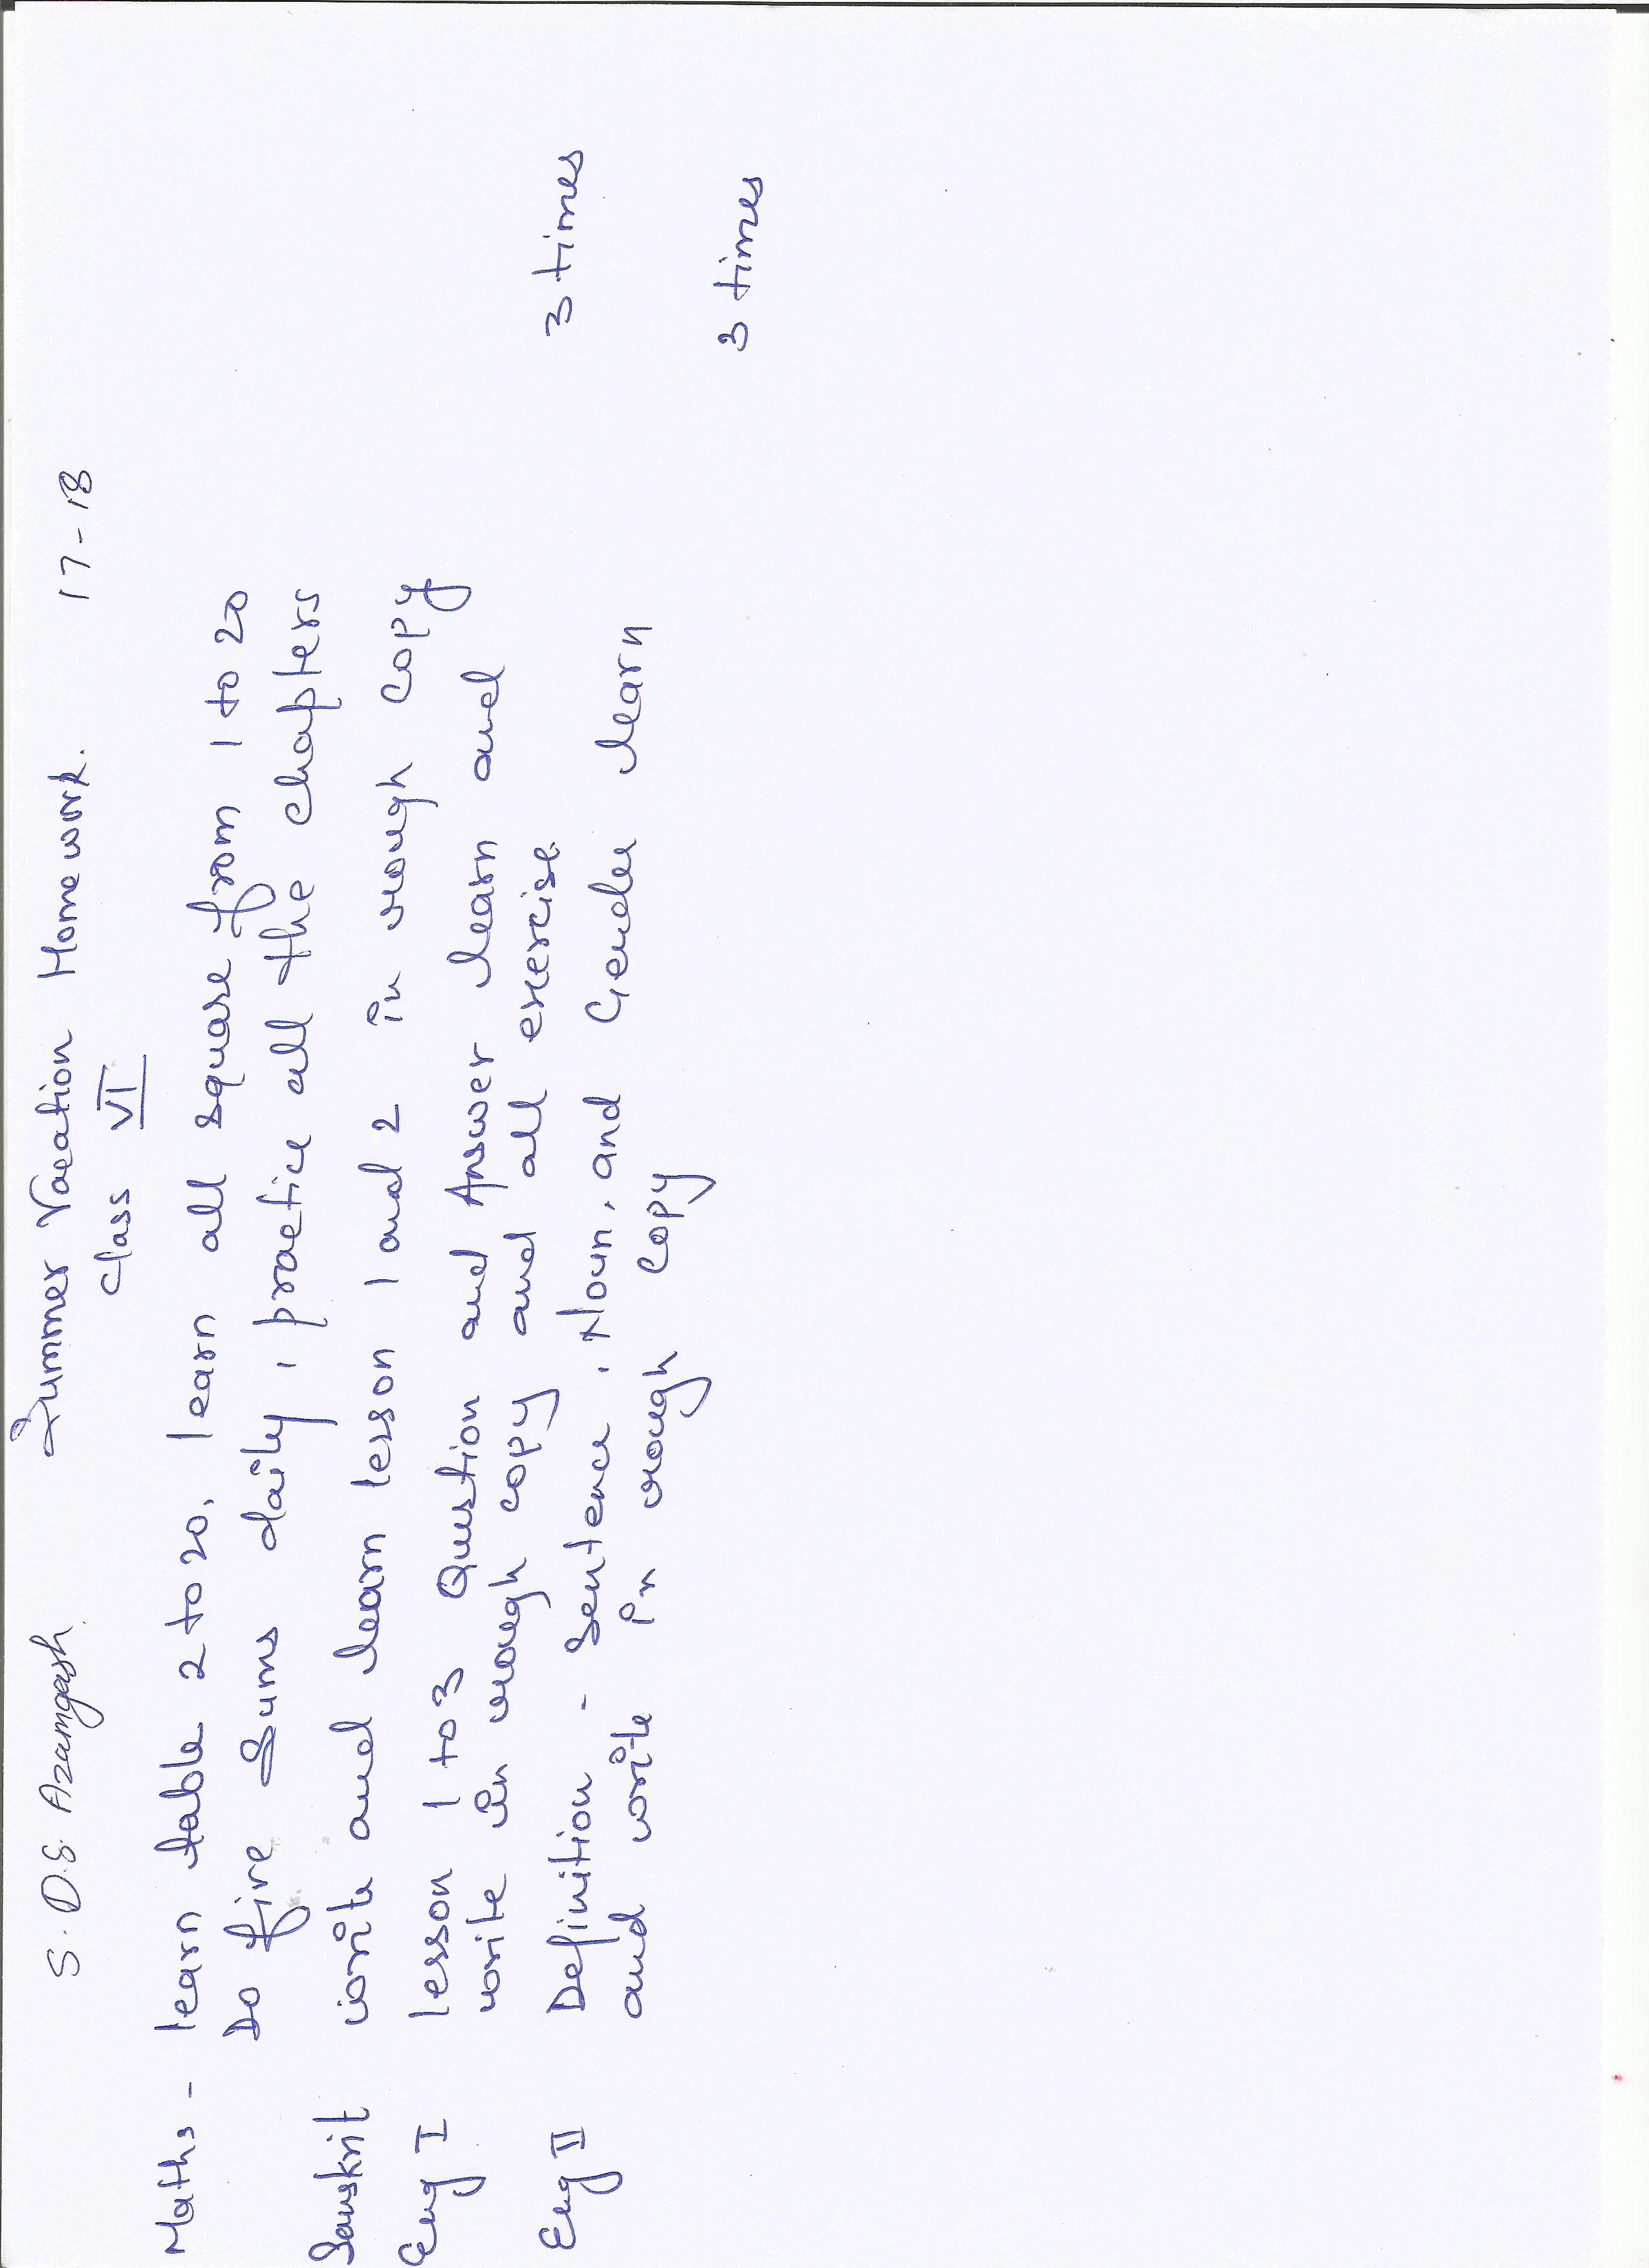 S.D.S. Azamgarh Summer Vacation Homework. 17-18
Class VI
Maths - learn table 2 to 20, learn all square from 1 to 20
Do five Sums daily, practice all the chapters
Sanskrit write and learn lesson 1 and 2 in rough copy
Eng I lesson 1 to 3 Question and Answer learn and
write in rough copy and all exercise 3 times
Eng II Definition - Sentence, Noun, and Gender learn
and write in rough copy
3 times